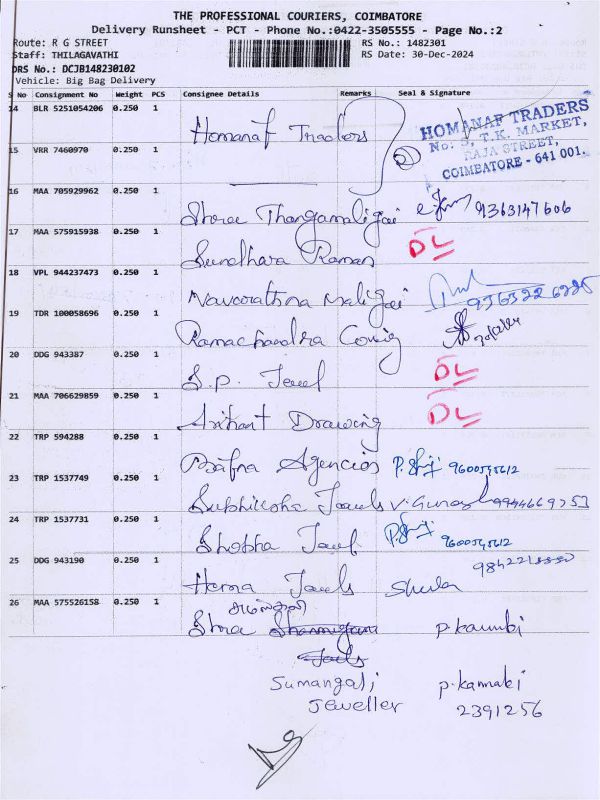 THE PROFESSIONAL COURIERS, COIMBATORE
Delivery Runsheet - PCT - Phone No.:0422-3505555 - Page No.:2
Route: R G STREET
RS No.: 1482301
Staff: THILAGAVATHI
RS Date: 30-Dec-2024
DRS No.: DCJB148230102
Vehicle: Big Bag Delivery
S No Consignment No Weight PCS Consignee Details Remarks Seal & Signature
14 BLR 5251054206 0.250 1
Homanaf Traders
HOMANAF TRADERS
No: 5, T.K. MARKET,
RAJA STREET,
COIMBATORE - 641 001.
15 VRR 7460970 0.250 1
16 MAA 705929962 0.250 1
Shree Thangamaligai 9363147606
17 MAA 575915938 0.250 1
Sundhara Raman DL
18 VPL 944237473 0.250 1
Navarathna Maligai
19 TDR 100058696 0.250 1
Ramachandra
20 DDG 943387 0.250 1
S.P. Jewel DL
21 MAA 706629859 0.250 1
Arihant Drawing DL
22 TRP 594288 0.250 1
Bafna Agencies
23 TRP 1537749 0.250 1
Subhiksha Jewels
24 TRP 1537731 0.250 1
Shobha Jewel
25 DDG 943190 0.250 1
Hema Jewels
26 MAA 575526158 0.250 1
Shree
Sumangali p.kannaki
Jeweller 2391256